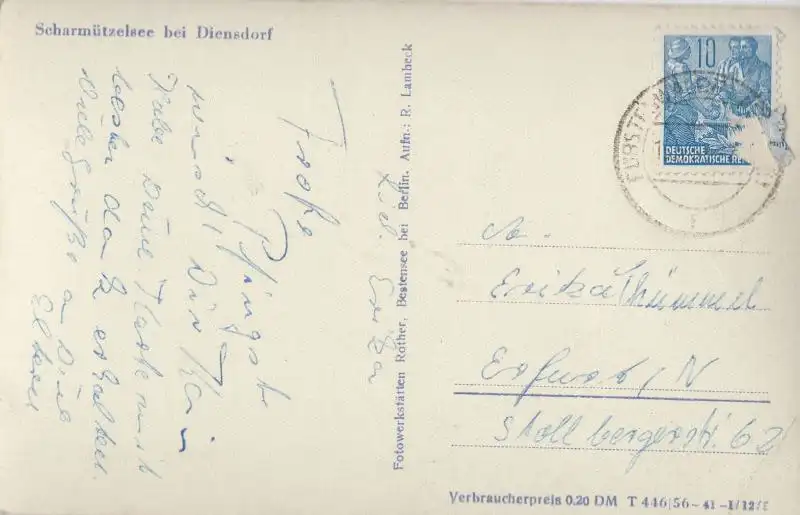 Scharmützelsee bei Diensdorf
Lieb. Erika
Frohe
Pfingst
wünscht Dir Kai
Habe Deine Karte mit
besten dank erhalten.
Viele Grüße an Deine
Eltern
Fotowerkstätten Rother, Bestensee bei Berlin. Aufn.: R. Lambeck
10
DEUTSCHE
DEMOKRATISCHE RE
FÜRSTENWALDE
Erika Thümmel
Erfurt/N
Stollbergerstr. 62
Verbraucherpreis 0,20 DM T 446/56-41-I/12/